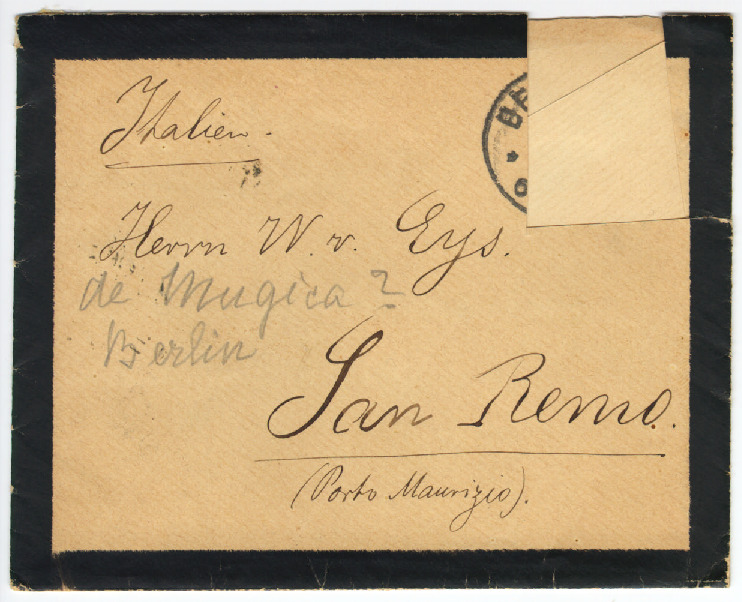 Italien.
BE
Herrn W. v. Eys.
de Mugica?
Berlin
San Remo.
(Porto Maurizio).